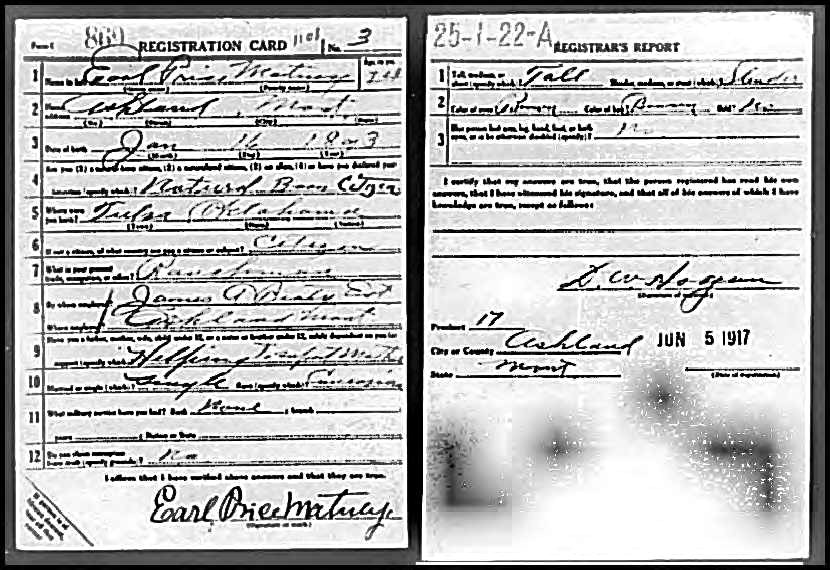 Form 1 869 REGISTRATION CARD No. 3
1 Name in full Earl Price Age, in yrs.
2 Home address Ashland Mont
3 Date of birth Jan 16
4 Are you (1) a natural-born citizen, (2) a naturalized citizen, (3) an alien, (4) or have you declared your
intention (specify which)? Natural Born Citizen
5 Where were you born? Tulsa Oklahoma
6 If not a citizen, of what country are you a citizen or subject? Citizen
7 What is your present trade, occupation, or office? Ranchman
8 By whom employed? James
Where employed? Ashland Mont
9 Have you a father, mother, wife, child under 12, or a sister or brother under 12, solely dependent on you for
support (specify which)? Helping
10 Married or single (which)? Single Race (specify which)? Caucasian
11 What military service have you had? Rank None ; branch
years ; Nation or State
12 Do you claim exemption from draft (specify grounds)? No
I affirm that I have verified above answers and that they are true.
Earl Price
(Signature or mark)
25-1-22-A REGISTRAR'S REPORT
1 Tall, medium, or short (specify which)? Tall Slender, medium, or stout (which)? Slender
2 Color of eyes Brown Color of hair Brown Bald? No
3 Has person lost arm, leg, hand, foot, or both eyes, or is he otherwise disabled (specify)? No
I certify that my answers are true, that the person registered has read his own
answers, that I have witnessed his signature, and that all of his answers of which I have
knowledge are true, except as follows:
D. W.
(Signature of registrar)
Precinct 17
City or County Ashland JUN 5 1917
State Mont (Date of registration)